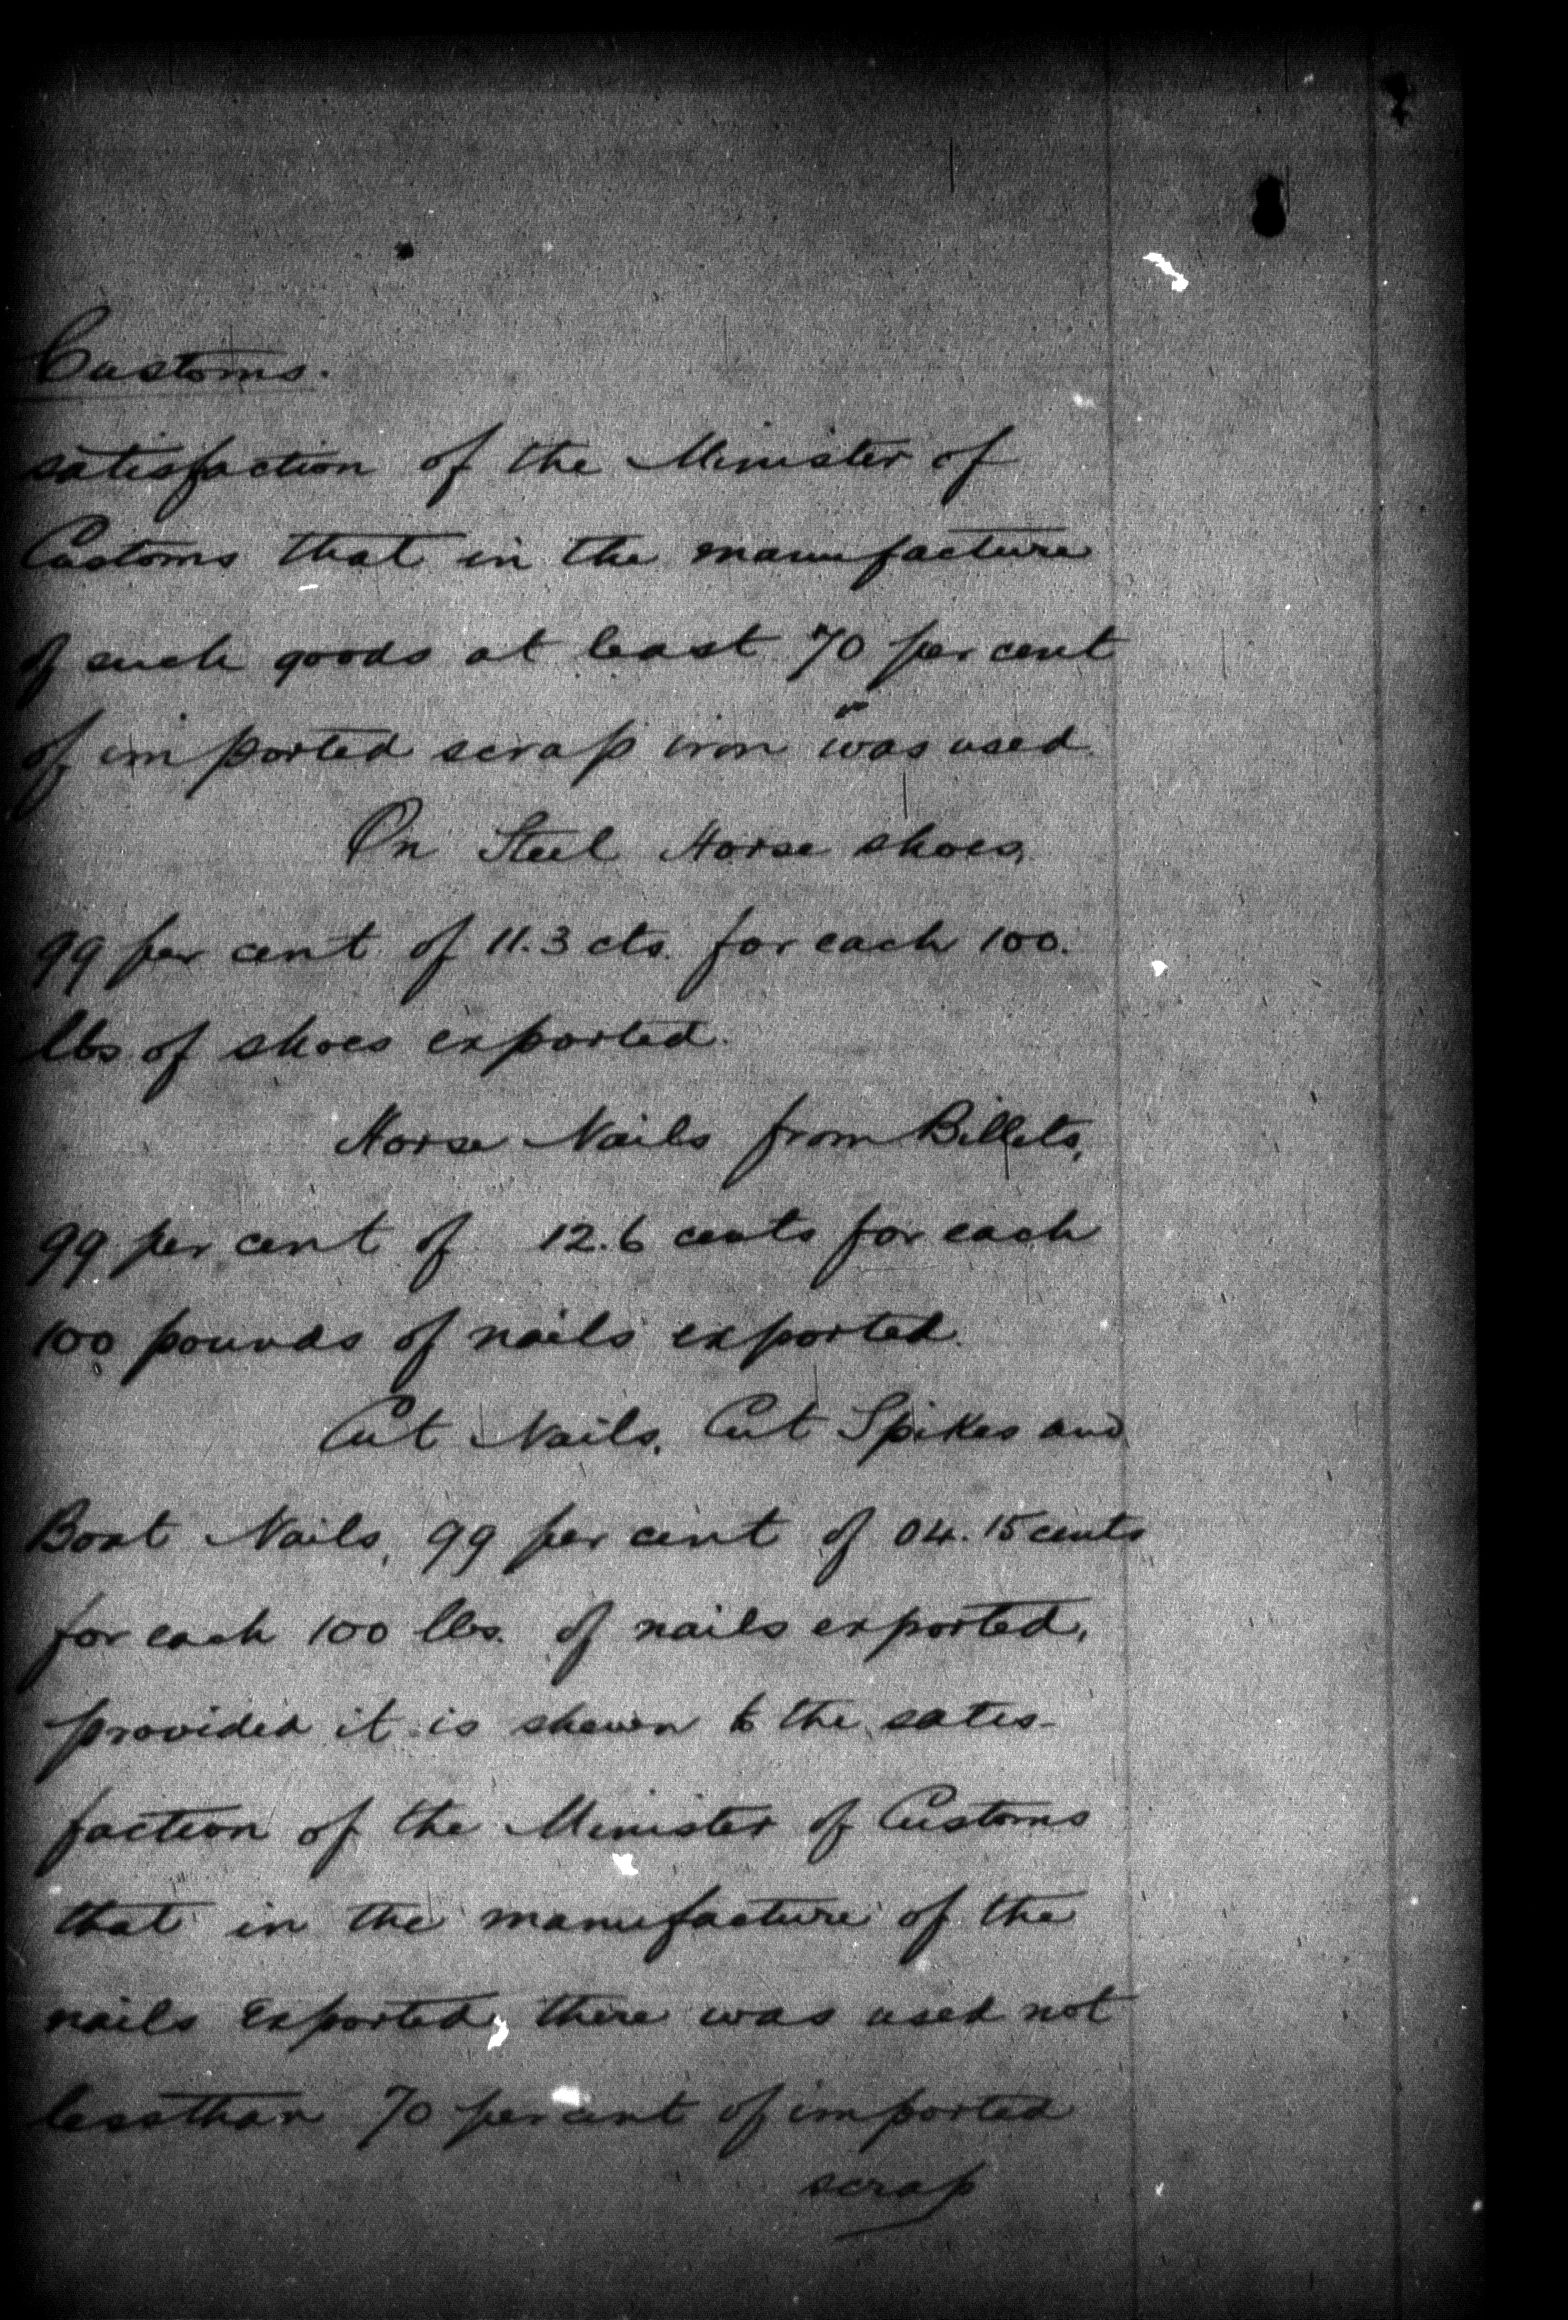 Customs.
satisfaction of the Minister of
Customs that in the manufacture
of such goods at least 70 per cent
of imported scrap iron was used
On Steel Horse shoes,
99 per cent of 11.3 cts. for each 100.
lbs of shoes exported.
Horse Nails from Billets,
99 per cent of 12.6 cents for each
100 pounds of nails exported.
Cut Nails, Cut Spikes and
Boat Nails, 99 per cent of 04.15 cents
for each 100 lbs. of nails exported,
provided it is shewn to the satis-
faction of the Minister of Customs
that in the manufacture of the
nails exported, there was used not
less than 70 per cent of imported
scrap